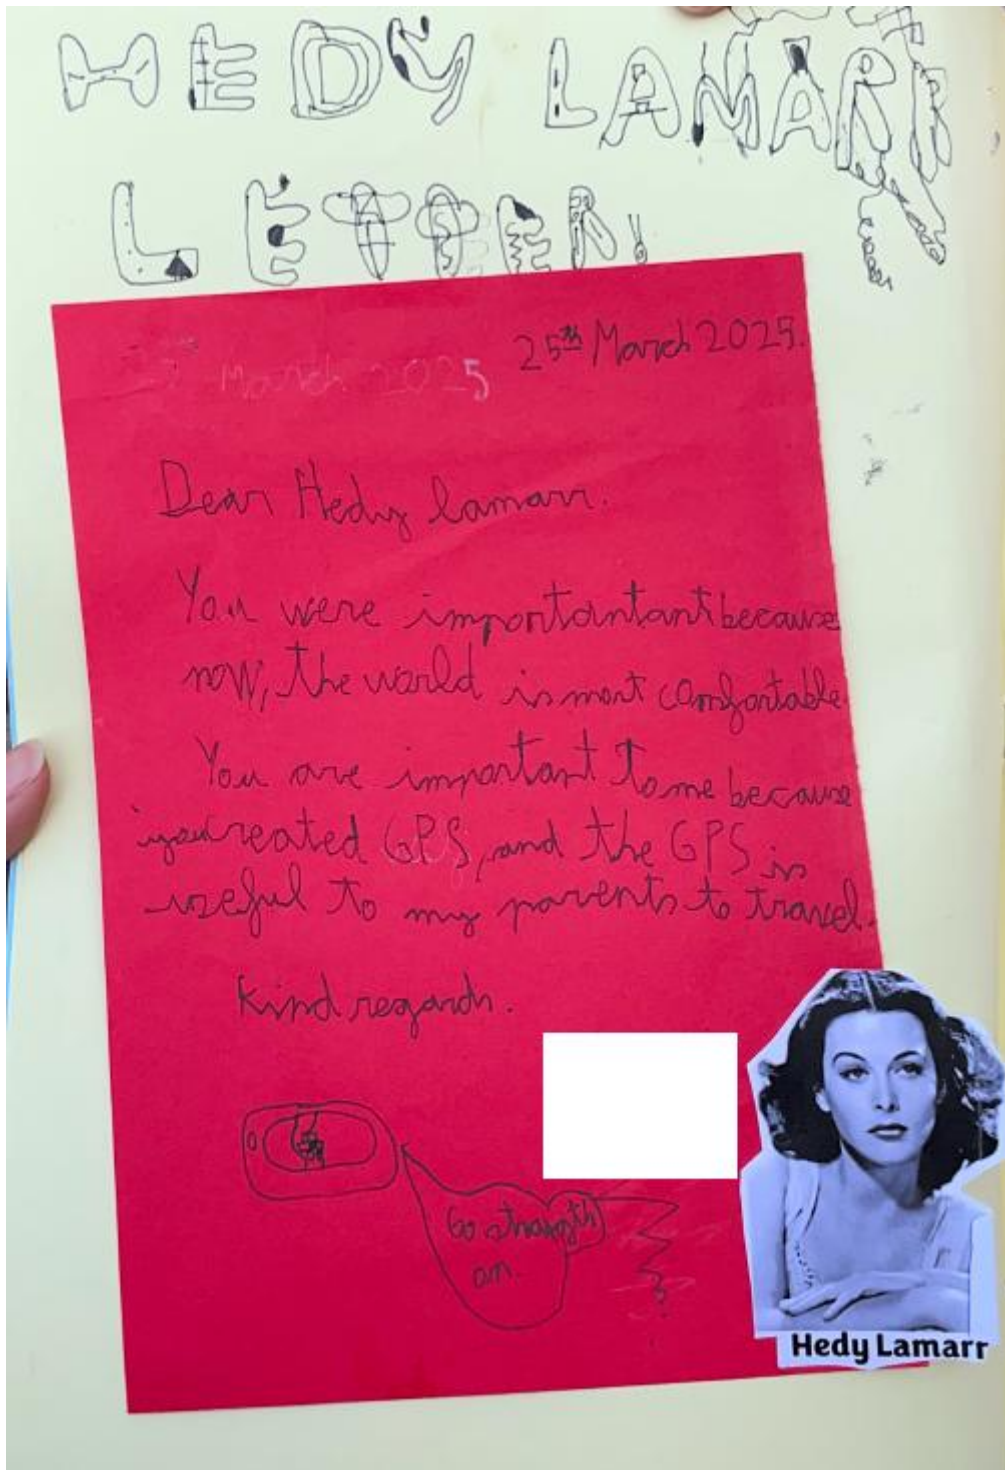 HEDY LAMARR
LETTER.
25th March 2025.
March 2025
Dear Hedy lamarr.
You were importantant because
now, the world is most comfortable.
You are important to me because
you created GPS, and the GPS is
useful to my parents to travel.
Kind regards.
Go
on.
Hedy Lamarr